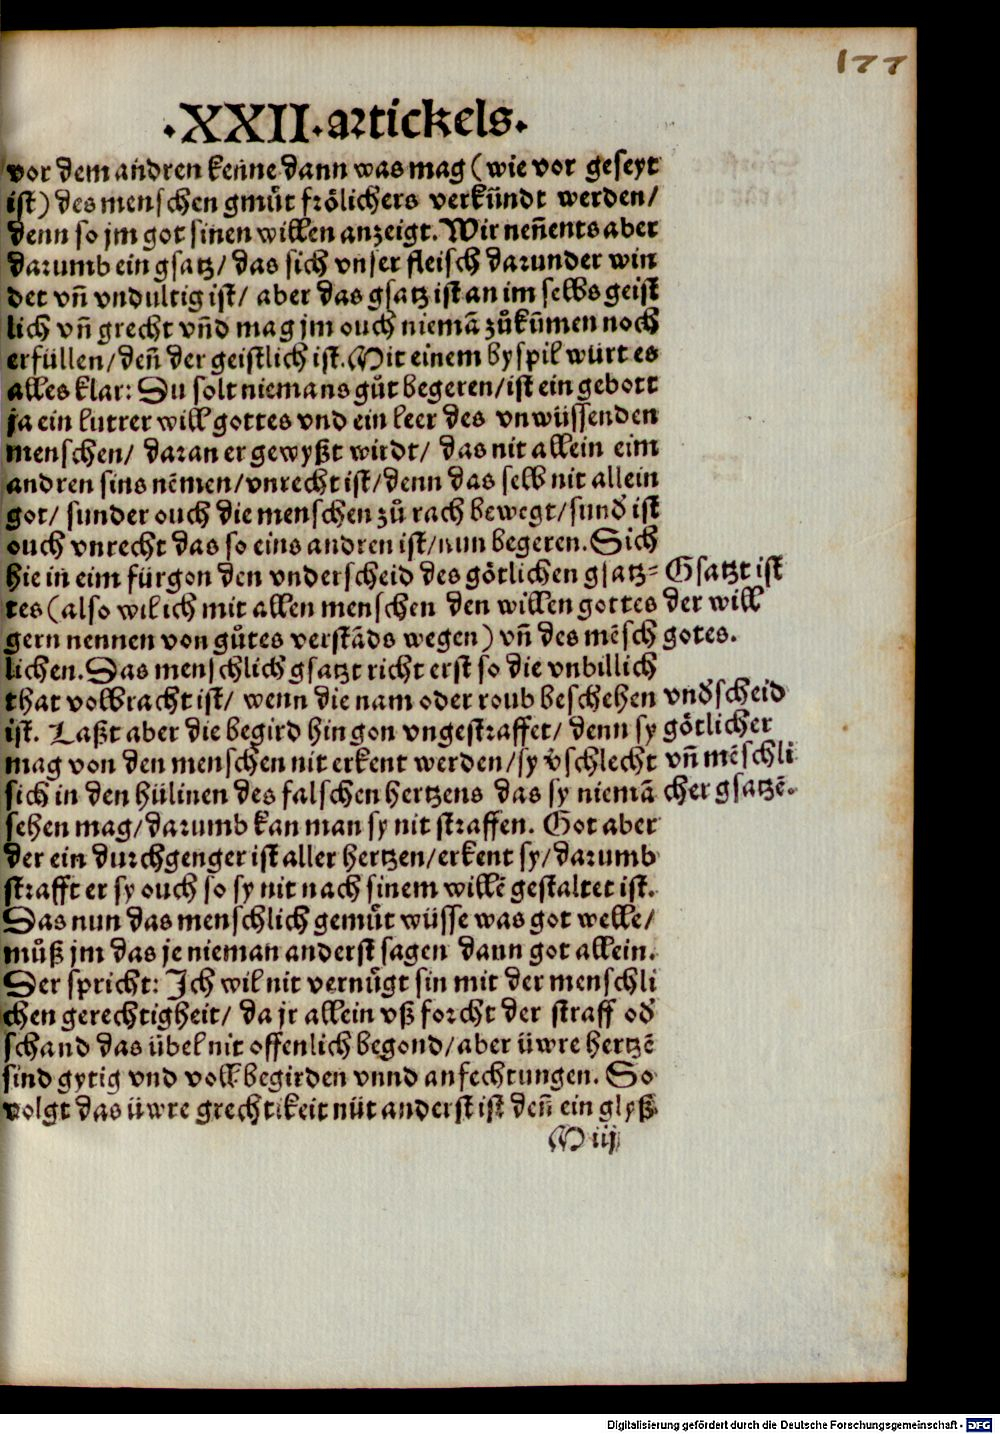 177
·XXII·artickels·
vor dem andren kenne dann was mag (wie vor geseyt
ist) des menschen gmuͤt frölichers verkündt werden/
denn so jm got sinen willen anzeigt. Wir neñents aber
darumb ein gsatz/ das sich vnser fleisch darunder win
det vñ vndultig ist/ aber das gsatz ist an im selbs geist
lich vñ grecht vñd mag jm ouch niemã zuͦkum̃en noch
erfüllen/deñ der geistlich ist. Mit einem byspil würt es
alles klar: Du solt niemans guͦt begeren/ist ein gebott
ja ein lutrer will gottes vnd ein leer des vnwüssenden
menschen/ daran er gewyßt wirdt/ das nit allein eim
andren sins nẽmen/vnrecht ist/denn das selb nit allein
got/ sunder ouch die menschen zuͦ rach bewegt/sund̕ ist
ouch vnrecht das so eins andren ist/nun begeren. Sich
hie in eim fürgon den vnderscheid des götlichen gsatz-
tes (also wil ich mit allen menschen den willen gottes
gern nennen von guͦtes verstãds wegen) vñ des mẽsch
lichen. Das menschlich gsatzt richt erst so die vnbillich
that volbracht ist/ wenn die nam oder roub beschehen
ist. Laßt aber die begird hin gon vngestraffet/ denn sy
mag von den menschen nit erkent werden/sy v̕schlecht
sich in den hülinen des falschen hertzens das sy niemã
sehen mag/darumb kan man sy nit straffen. Got aber
der ein durchgenger ist aller hertzen/erkent sy/darumb
strafft er sy ouch so sy nit nach sinem willẽ gestaltet ist.
Das nun das menschlich gemuͤt wüsse was got welle/
muͦß jm das je nieman anderst sagen dann got allein.
Der spricht: Ich wil nit vernuͤgt sin mit der menschli
chen gerechtigheit/ da jr allein vß forcht der straff od̕
schand das übel nit offenlich begond/aber üwre hertzẽ
sind gytig vnd voll begirden vnnd anfechtungen. So
volgt das üwre grechtikeit nüt anderst ist deñ ein glyß
M iij
Gsatzt ist
der will
gotes.
vnd̕scheid
götlicher
vñ mẽschli
cher gsatzẽ.
Digitalisierung gefördert durch die Deutsche Forschungsgemeinschaft - DFG